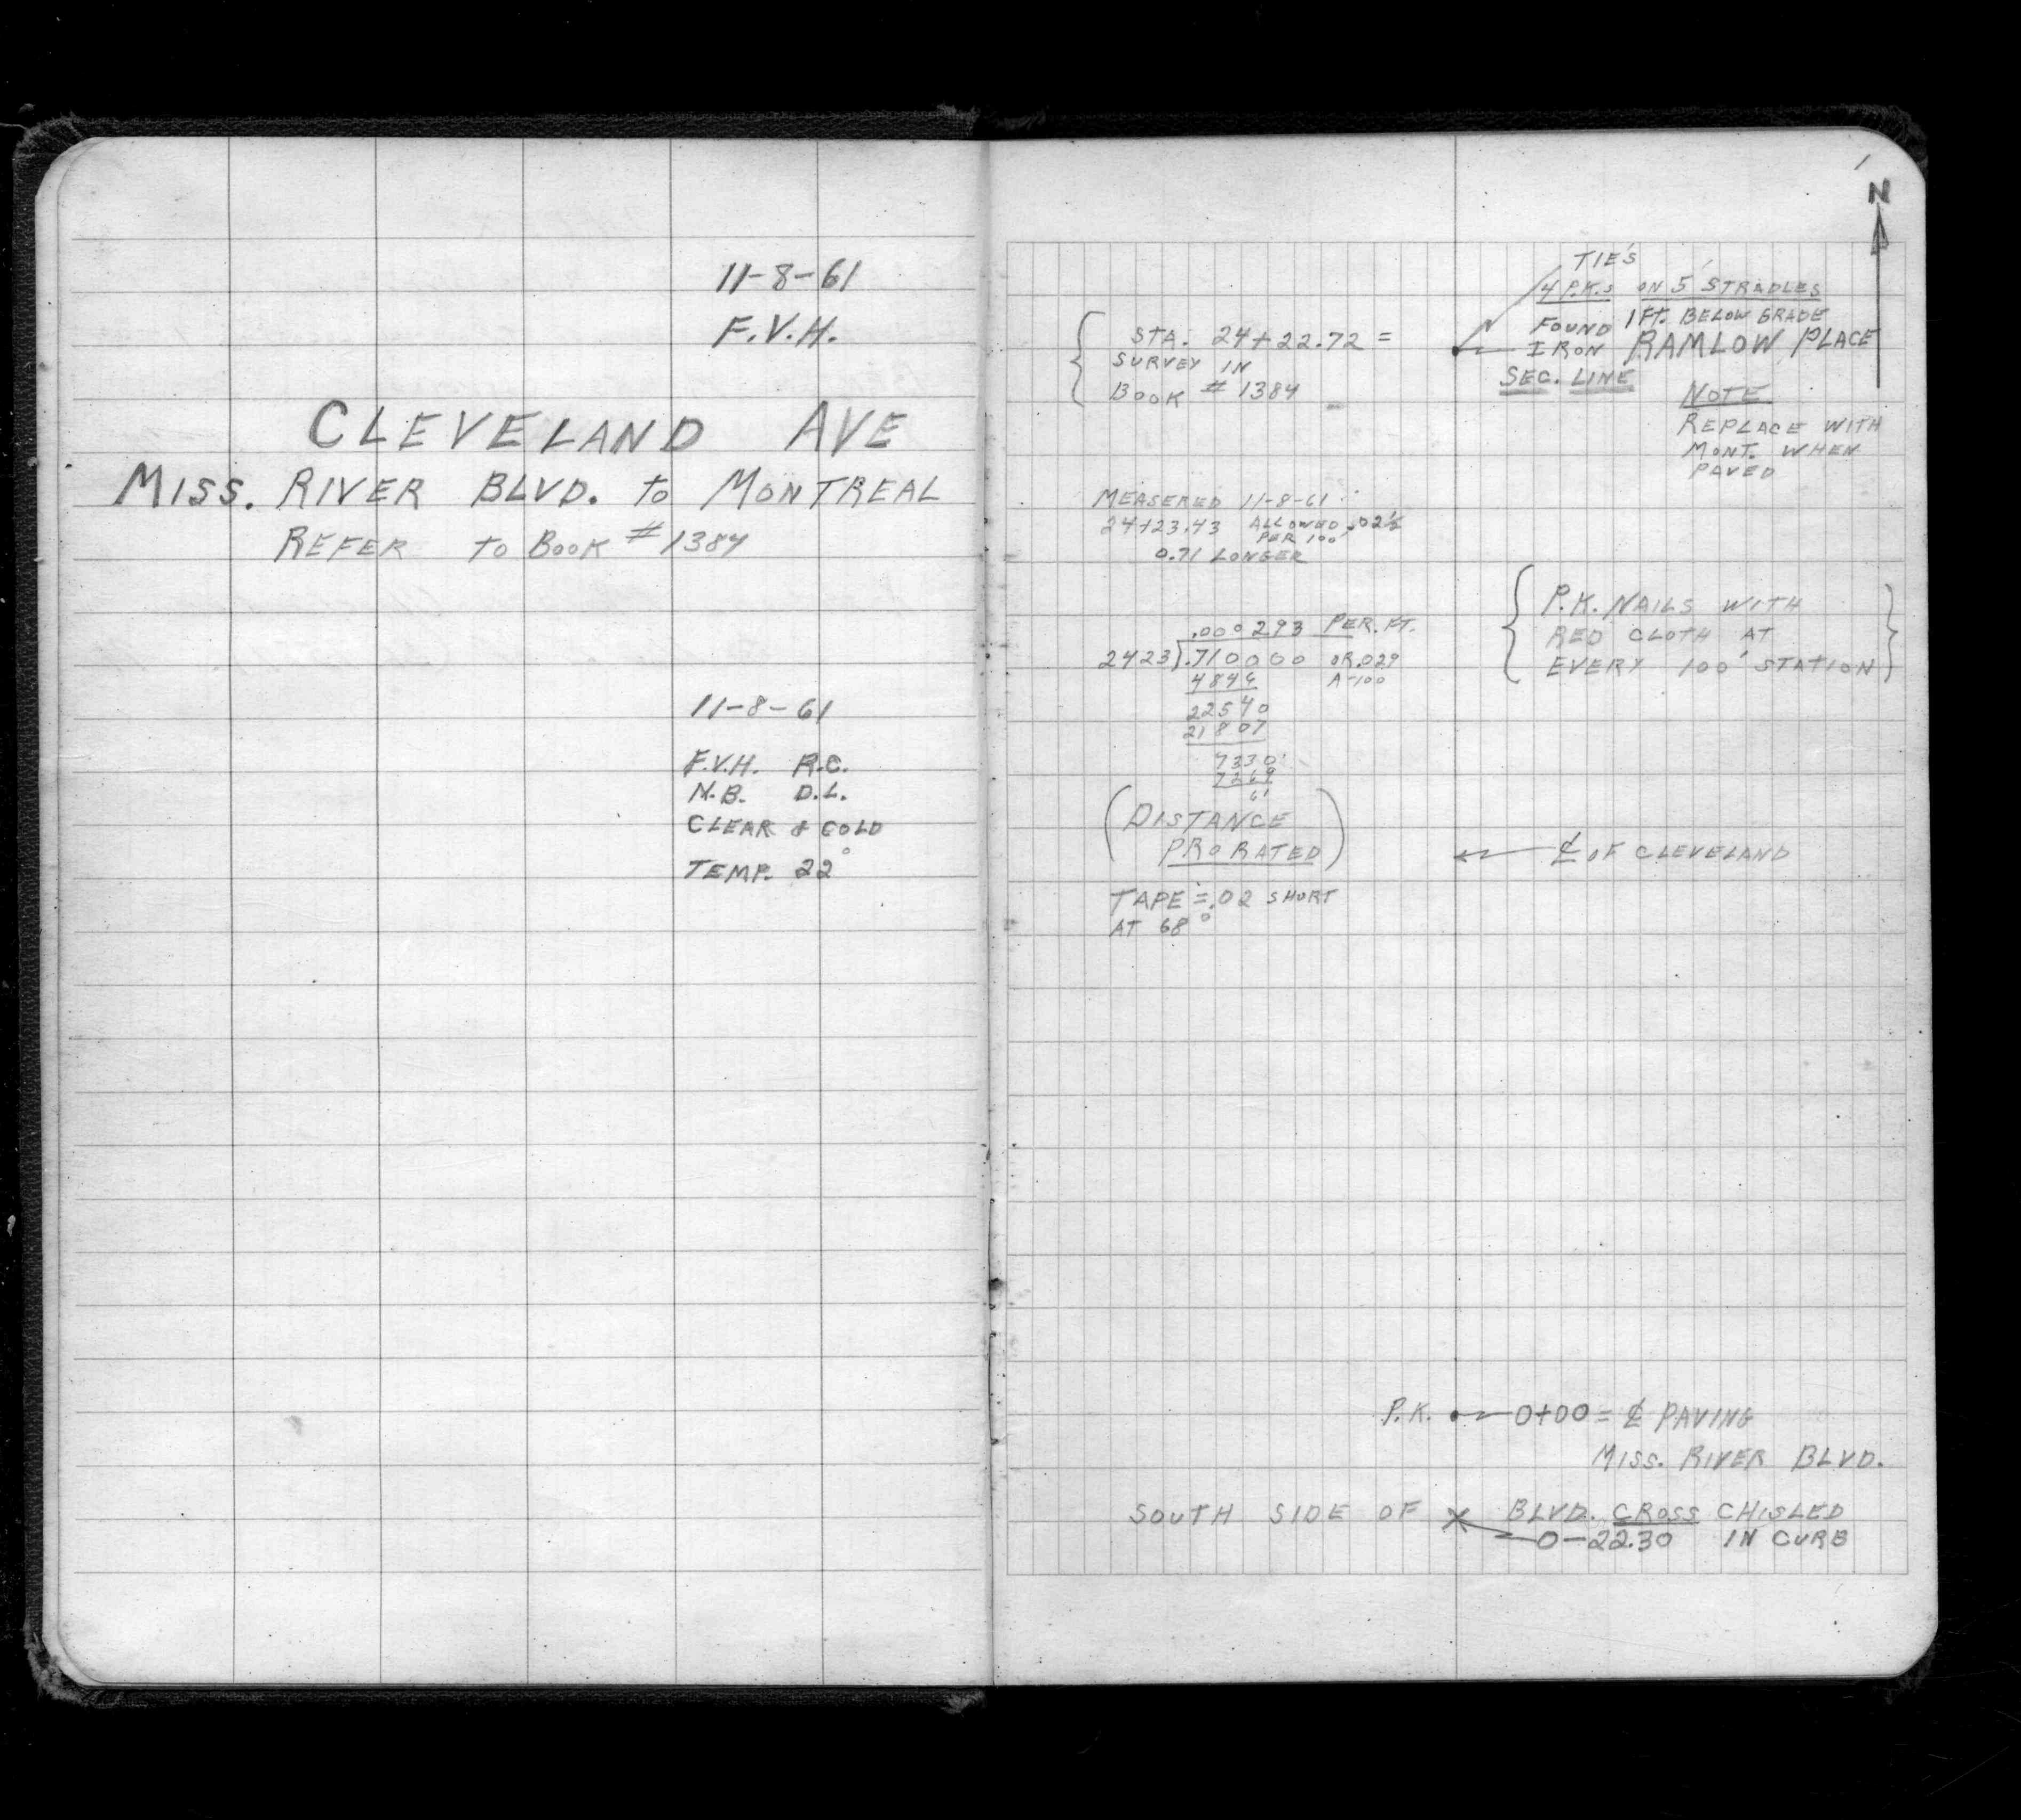 11-8-61
F.V.H.
CLEVELAND AVE
MISS. RIVER BLVD. to MONTREAL
REFER TO BOOK #1384
11-8-61
F.V.H. R.C.
N.B. D.L.
CLEAR & COLD
TEMP. 22°
1
N
TIE'S
4 P.K.s ON 5' STRADLES
FOUND 1 FT. BELOW GRADE
IRON RAMLOW PLACE
SEC. LINE
STA. 24+22.72 =
SURVEY IN
BOOK # 1384
NOTE
REPLACE WITH
MONT. WHEN
PAVED
MEASERED 11-8-61
24+23.43 ALLOWED .02½
PER 100'
0.71 LONGER
.000293 PER. FT.
2423).710000 OR .029
4846 A-100
22540
21807
7330
7269
61
P.K. NAILS WITH
RED CLOTH AT
EVERY 100' STATION
(DISTANCE
PRORATED)
℄ OF CLEVELAND
TAPE = .02 SHORT
AT 68°
P.K. 0+00 = ℄ PAVING
MISS. RIVER BLVD.
SOUTH SIDE OF X BLVD. CROSS CHISLED
0-22.30 IN CURB